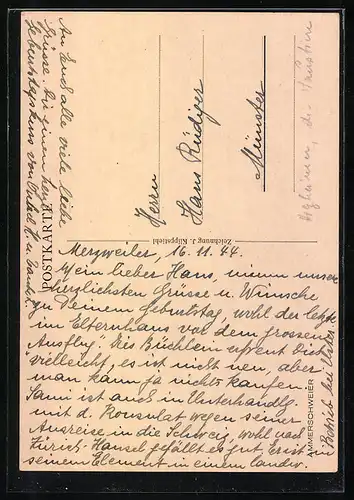 POSTKARTE
Zeichnung J. Klippstiehl
AMMERSCHWEIER
Herrn
Hans Rüdiger
Münster
Merzweiler, 16. 11. 44.
Mein lieber Hans, nimm unsere
herzlichsten Grüsse u. Wünsche
zu Deinem Geburtstag, wohl der letzte
im Elternhaus vor dem grossen
"Ausflug". Das Büchlein erfreut Dich
vielleicht, es ist nicht neu, aber
man kann ja nichts kaufen.
ist auch in Unterhandlg
mit d. Konsulat wegen seiner
Ausreise in die Schweiz, wohl nach
Zürich. Hansel gefällt es gut, Er ist in
seinem Element in einem landw.
Betrieb bei
An Euch alle viele liebe
Grüsse. Dir einen
Geburtstagskuss von Onkel u. Tante